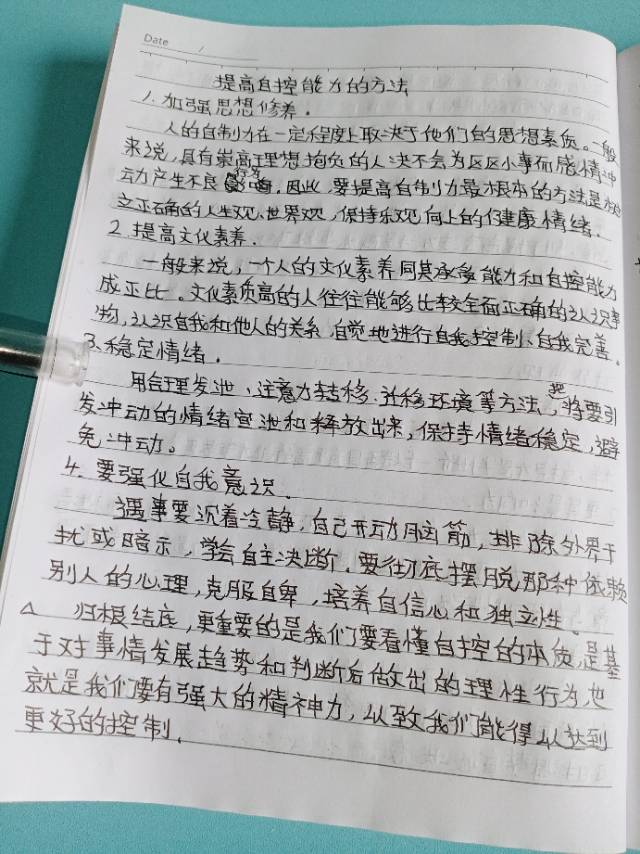 Date /
提高自控能力的方法
1. 加强思想修养.
人的自制力在一定程度上取决于他们的思想素质。一般
来说,具有崇高理想抱负的人决不会为区区小事而感情冲
动产生不良行为.因此,要提高自制力最根本的方法是树
立正确的人生观、世界观,保持乐观向上的健康情绪.
2.提高文化素养.
一般来说,一个人的文化素养同其承受能力和自控能力
成正比.文化素质高的人往往能够比较全面正确的认识事
物,认识自我和他人的关系,自觉地进行自我控制、自我完善。
3.稳定情绪.
用合理发泄、注意力转移.迁移环境等方法,把将要引
发冲动的情绪宣泄和释放出来,保持情绪稳定,避
免冲动。
4.要强化自我意识.
遇事要沉着冷静,自己开动脑筋,排除外界干
扰或暗示,学会自主决断.要彻底摆脱那种依赖
别人的心理,克服自卑,培养自信心和独立性.
△ 归根结底,更重要的是我们要看懂自控的本质,是基
于对事情发展趋势和判断后做出的理性行为,也
就是我们要有强大的精神力,以致我们能得以达到
更好的控制.